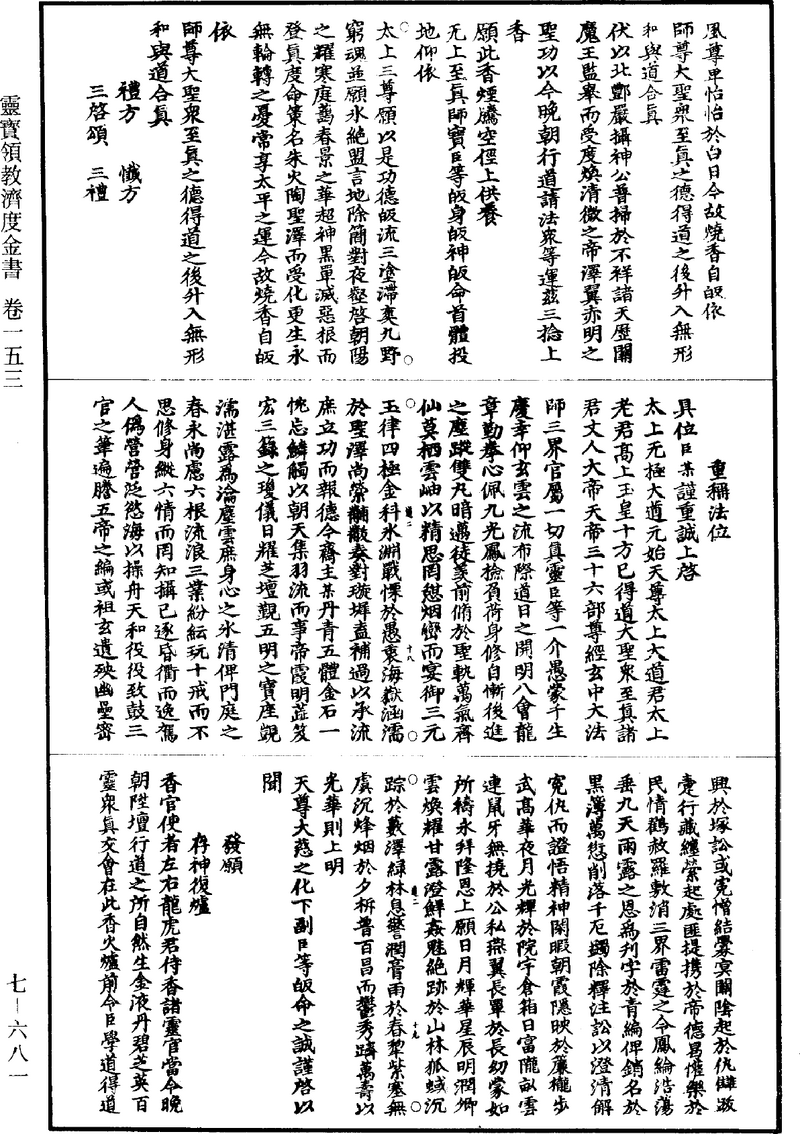 凰尊卑怡怡於白日今故燒香自皈依
師尊大聖衆至真之德得道之後升入無形
和與道合真
伏以北酆嚴攝神公普掃於不祥諸天歷關
魔王監舉而受度煥清微之帝澤翼赤明之
聖功以今晚朝行道請法衆等運茲三捻上
香
願此香煙騰空徑上供養
无上至真師寶臣等皈身皈神皈命首體投
地仰依
太上三尊願以是功德皈流三塗滯爽九野
窮魂並願永絶盟言地除簡對夜壑啓朝陽
之耀寒庭藹春景之華超神黑單滅惡根而
登真度命策名朱火陶聖澤而受化更生永
無輪轉之憂常享太平之運今故燒香自皈
依
師尊大聖衆至真之德得道之後升入無形
和與道合真
禮方 懺方
三啓頌 三禮
重稱法位
具位臣某謹重誠上啓
太上无極大道元始天尊太上大道君太上
老君高上玉皇十方已得道大聖衆至真諸
君丈人大帝天帝三十六部尊經玄中大法
師三界官屬一切真靈臣等一介愚蒙千生
慶幸仰玄雲之流布際道日之開明八會龍
章勤拳心佩九光鳳撿負荷身修自慚後進
之塵蹤雙丸暗邁徒羨前脩於聖軌萬氣齊
仙莫栖雲岫以精思罔憇烟巒而宴御三元
玉律四極金科氷淵戰慄於愚衷海嶽涵濡
於聖澤尚縈黼黻奏對璇墀盍補過以承流
庶立功而報德今齋主某丹青五體金石一
忱忘鱗觸以朝天集羽流而事帝霞明蕋笈
宏三籙之瓊儀日耀芝壇觀五明之寶座覬
濡湛露爲淪塵雲庶身心之氷清俾門庭之
春永尚慮六根流浪三業紛紜玩十戒而不
思修身縱六情而罔知攝已逐昏衢而逸駕
人僞營營泛慾海以操舟天和役役致鼓三
官之筆遍謄五帝之編或祖玄遺殃幽壘密
興於塚訟或冤憎結釁冥關陰起於仇讎政
寔行藏纏縈起處匪提攜於帝德曷慛樂於
民情鶴赦羅敷消三界雷霆之令鳳綸浩蕩
垂九天雨露之恩爲刋字於青編俾銷名於
黑簿萬愆削落千厄蠲除釋注訟以澄清解
冤仇而證悟精神閑暇朝霞隱映於簾櫳步
武高華夜月光輝於院宇倉箱日富隴畝雲
連鼠牙無撓於公私燕翼長單於長幼蒙如
所禱永拜隆恩上願日月輝華星辰明潤卿
雲煥耀甘露澄鮮姦魅絶跡於山林狐蜮沉
踪於藪澤緑林息警潤膏雨於春犁紫塞無
虞沉烽烟於夕柝普百昌而鬱秀躋萬壽以
光華則上明
天尊大慈之化下副臣等皈命之誠謹啓以
聞
發願
存神復爐
香官使者左右龍虎君侍香諸靈官當令晚
朝陞壇行道之所自然生金液丹碧芝英百
靈衆真交會在此香火爐前令臣學道得道
靈寶領教濟度金書 卷一五三
七－六八一